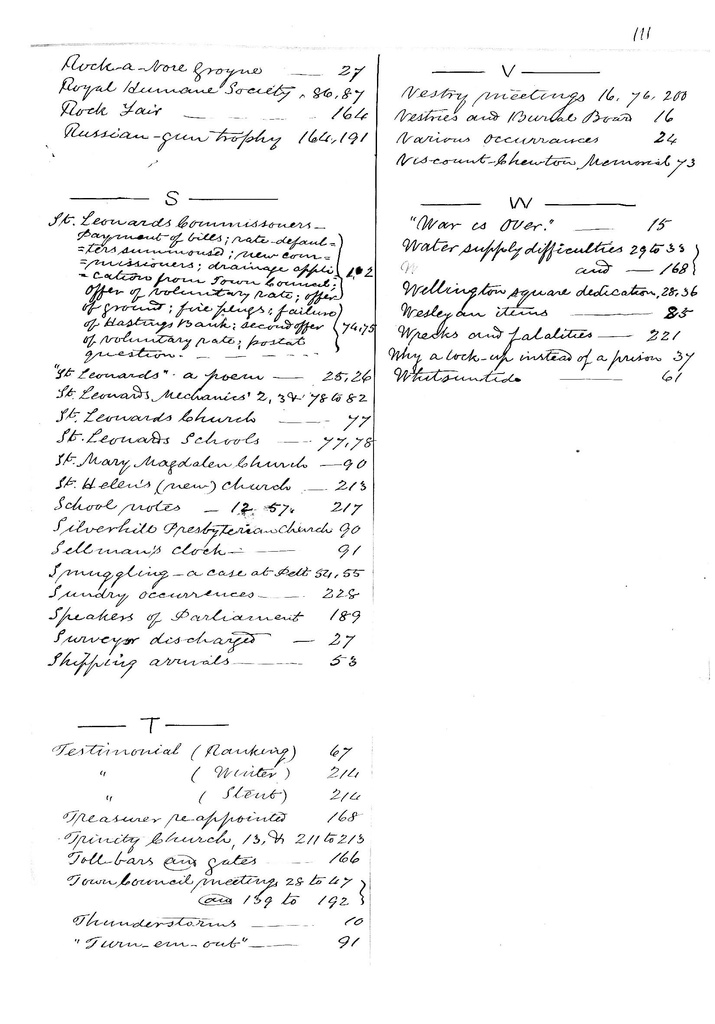 111
Rock-a-Nore Groyne — 27
Royal Humane Society, 86, 87
Rock Fair — 164
Russian-gun trophy 164, 191
— S —
St. Leonards Commissoners—
Payment of bills; rate-defaul-
=ters summoned; new com-
=missioners; drainage appli
=cation from Town Council; 1, 2
offer of voluntary rate; offer
of ground; fire plugs; failure
of Hastings Bank; second offer 74, 75
of voluntary rate; postal
question. — — —
"St. Leonards" - a poem — 25, 26
St. Leonards Mechanics' 2, 3 & 78 to 82
St. Leonards Church — 77
St. Leonards Schools — 77, 78
St. Mary Magdalen Church — 90
St. Helen's (new) Church — 213
School notes — 12, 57, 217
Silverhill Presbyterian Church 90
Sellman's clock — — 91
Smuggling — a case at Pett 54, 55
Sundry occurrences — 228
Speakers of Parliament 189
Surveyor discharged — 27
Shipping arrivals — — 53
— T —
Testimonial (Ranking) 67
" (Winter) 214
" (Stent) 214
Treasurer re-appointed 168
Trinity Church, 13, & 211 to 213
Toll-bars and gates — 166
Town Council meetings 28 to 47
and 139 to 192
Thunderstorms — 10
"Turn-em-out" — 91
— V —
Vestry meetings 16, 76, 200
Vestries and Burial Board 16
Various occurrances 24
Viscount-Chewton Memorial 73
— W —
"War is Over." — 15
Water supply difficulties 29 to 33
and — 168
Wellington square dedication, 28, 36
Wesleyan items — 85
Wrecks and fatalities — 221
Why a lock-up instead of a prison 37
Whitsuntide — 61